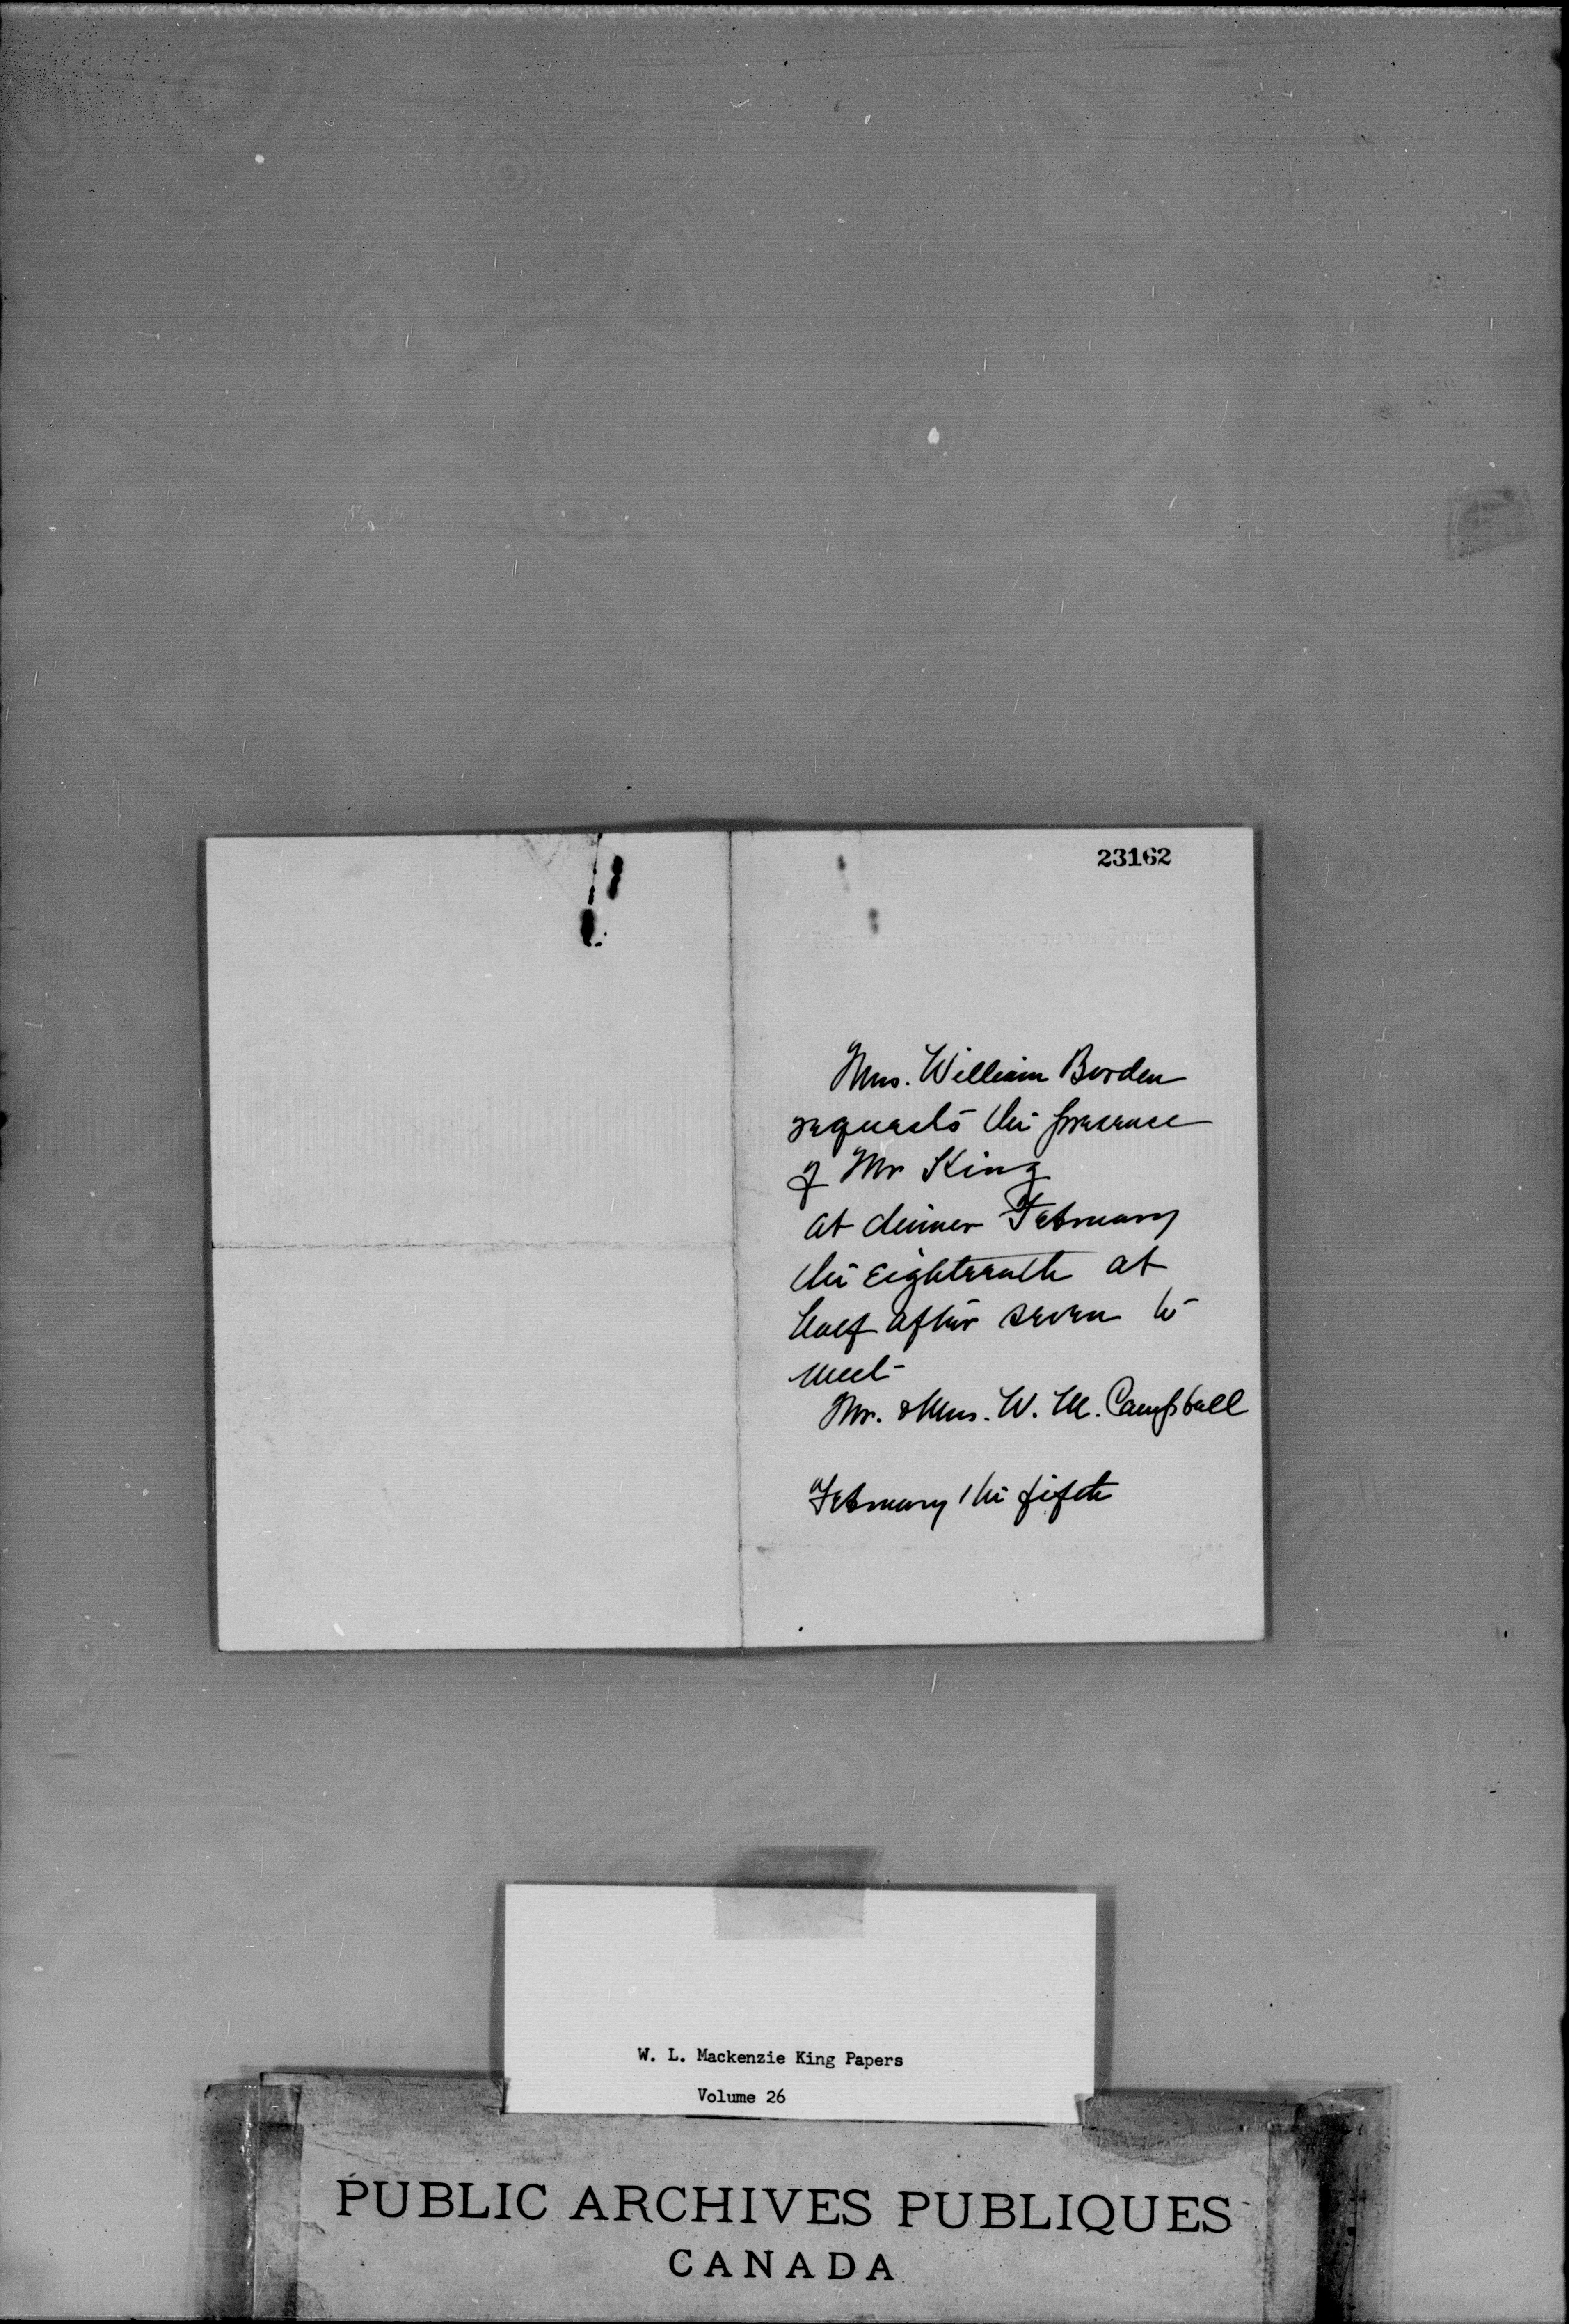 23162
Mrs. William Borden
requests the presence
of Mr King
at dinner February
the eighteenth at
half after seven to
meet
Mr. & Mrs. W. M. Campbell
February the fifth
W. L. Mackenzie King Papers
Volume 26
PUBLIC ARCHIVES PUBLIQUES
CANADA